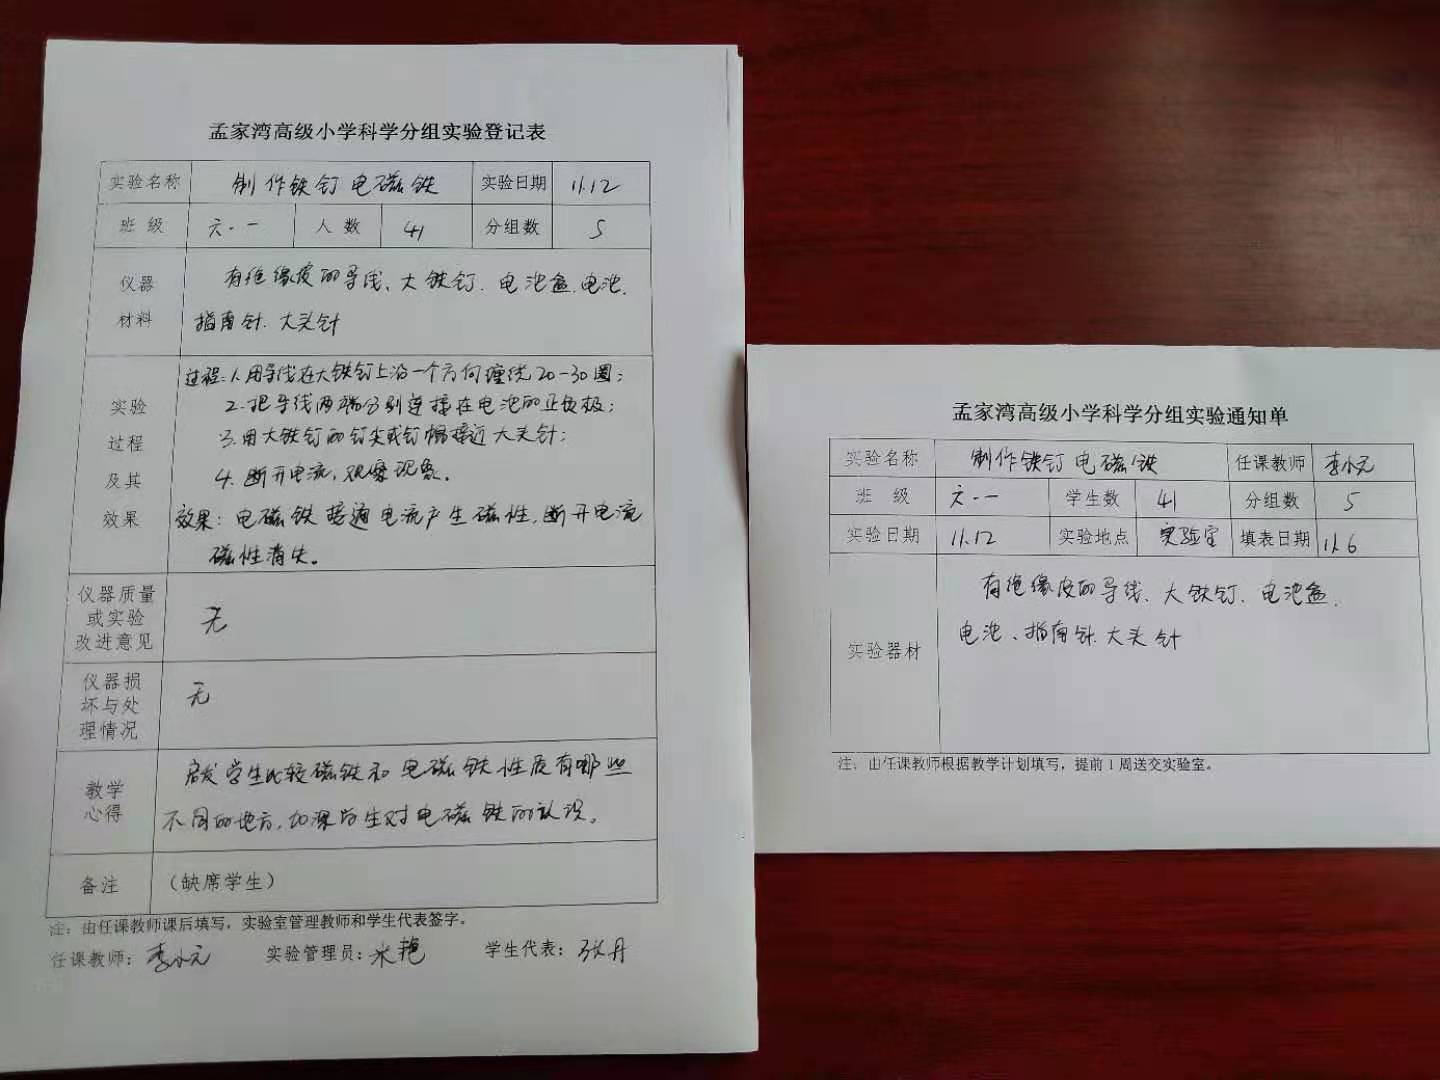 孟家湾高级小学科学分组实验登记表
实验名称 制作铁钉电磁铁 实验日期 11.12
班 级 六.一 人 数 41 分组数 5
仪器 有绝缘皮的导线、大铁钉、电池盒、电池、
材料 指南针、大头针
过程:1.用导线在大铁钉上沿一个方向缠绕20-30圈;
实验 2.把导线两端分别连接在电池的正负极;
过程 3.用大铁钉的钉尖或钉帽接近大头针;
及其 4.断开电流,观察现象。
效果 效果:电磁铁接通电流产生磁性,断开电流
磁性消失。
仪器质量
或实验 无
改进意见
仪器损
坏与处 无
理情况
教学 启发学生比较磁铁和电磁铁性质有哪些
心得 不同的地方,加深学生对电磁铁的认识。
备注 (缺席学生)
注:由任课教师课后填写,实验室管理教师和学生代表签字。
任课教师:李小元 实验管理员:米艳 学生代表:张丹
孟家湾高级小学科学分组实验通知单
实验名称 制作铁钉电磁铁 任课教师 李小元
班 级 六.一 学生数 41 分组数 5
实验日期 11.12 实验地点 实验室 填表日期 11.6
有绝缘皮的导线、大铁钉、电池盒、
电池、指南针、大头针
实验器材
注:由任课教师根据教学计划填写,提前1周送交实验室。